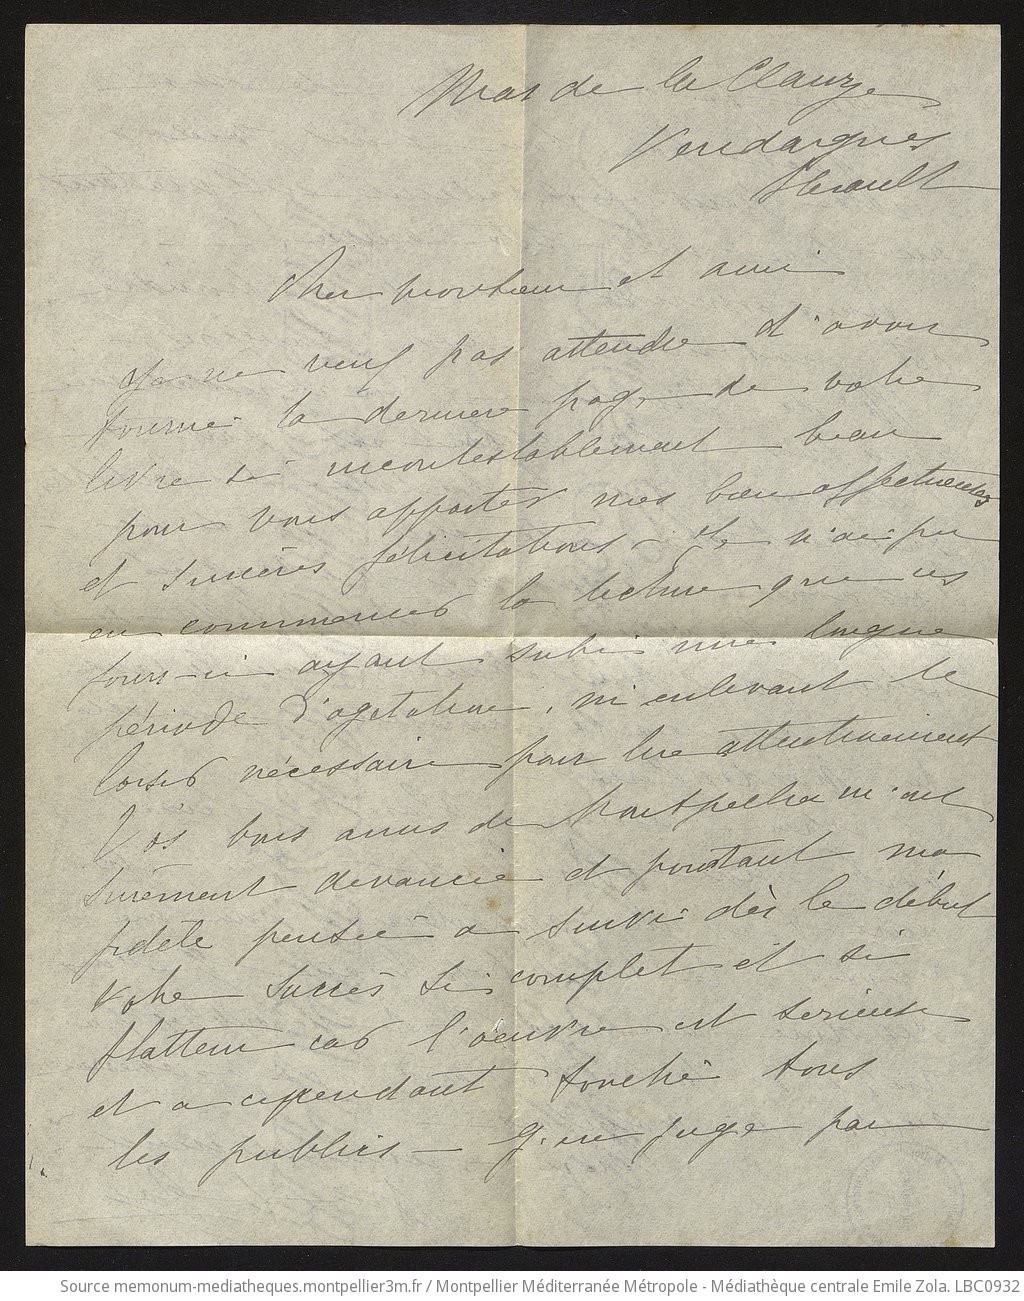 Mas de la Clauze
Vendargues
Hérault
Cher monsieur et ami
Je ne veux pas attendre d'avoir
tourné la dernière page de votre
livre si incontestablement beau
pour vous apporter mes bien affectueuses
et sincères félicitations - Je n'ai pu
en commencer la lecture que ces
jours-ci ayant subi une longue
période d'agitation, m'enlevant le
loisir nécessaire pour lire attentivement
Vos bons amis de Montpellier m'ont
surement devancée et pourtant ma
fidèle pensée a suivi dès le début
votre succès si complet et si
flatteur car l'oeuvre est sérieuse
et a cependant touché tous
les publics - J'en juge par
Source memonum-mediatheques.montpellier3m.fr / Montpellier Méditerranée Métropole - Médiathèque centrale Emile Zola. LBC0932